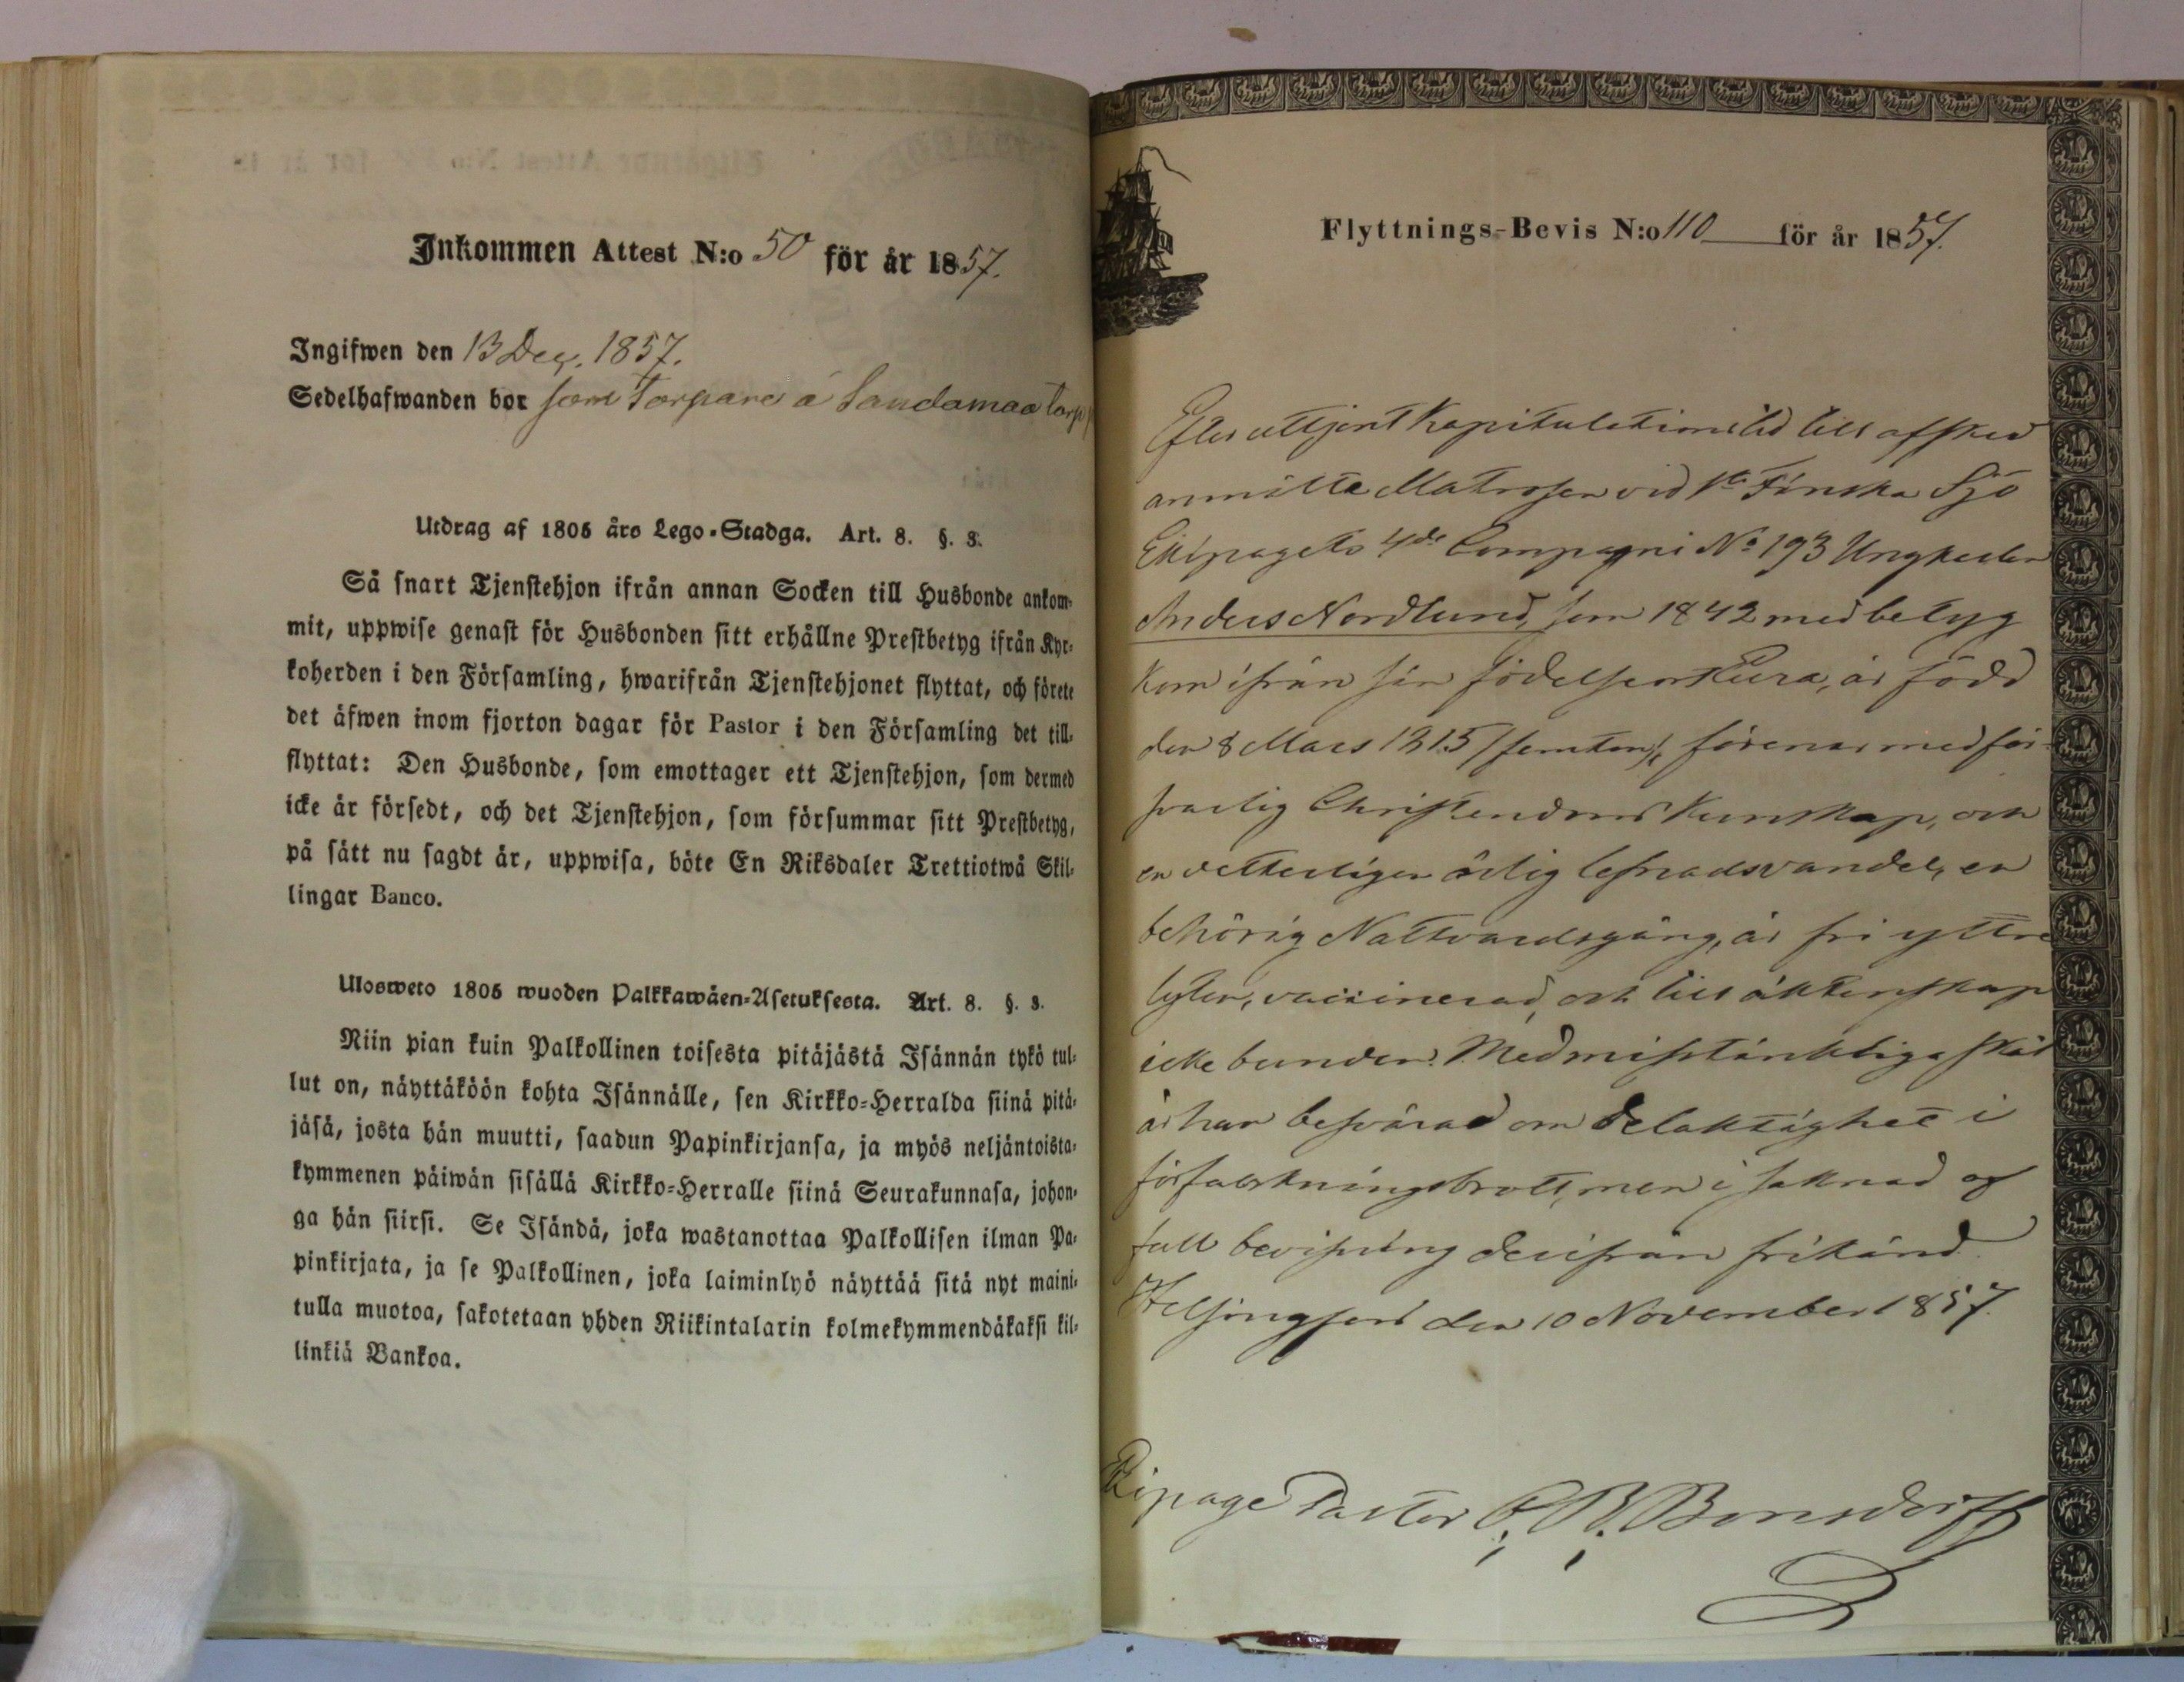 Inkommen Attest N:o 50 för år 1857.
Ingifwen den 13 Dec. 1857.
Sedelhafwanden bor som Torpare å Sandamaa torp
Utdrag af 1805 års Lego-Stadga. Art. 8. §. 3.
Så snart Tjenstehjon ifrån annan Socken till Husbonde ankom-
mit, uppwise genast för Husbonden sitt erhållne Prestbetyg ifrån Kyr-
koherden i den Församling, hwarifrån Tjenstehjonet flyttat, och förete
det äfwen inom fjorton dagar för Pastor i den Församling det till-
flyttat: Den Husbonde, som emottager ett Tjenstehjon, som dermed
icke är försedt, och det Tjenstehjon, som försummar sitt Prestbetyg,
på sätt nu sagdt är, uppwisa, böte En Riksdaler Trettiotwå Skil-
lingar Banco.
Ulosweto 1805 wuoden Palkkawäen-Asetuksesta. Art. 8. §. 3.
Niin pian kuin Palkollinen toisesta pitäjästä Isännän tykö tul-
lut on, näyttäköön kohta Isännälle, sen Kirkko-Herralda siinä pitä-
jäsä, josta hän muutti, saadun Papinkirjansa, ja myös neljäntoista-
kymmenen päiwän sisällä Kirkko-Herralle siinä Seurakunnasa, johon-
ga hän siirsi. Se Isändä, joka wastanottaa Palkollisen ilman Pa-
pinkirjata, ja se Palkollinen, joka laiminlyö näyttää sitä nyt maini-
tulla muotoa, sakotetaan yhden Riikintalarin kolmekymmendäkaksi kil-
linkiä Bankoa.
Flyttnings-Bevis N:o 110 för år 1857.
Efter uttjent Kapitulationstid till afsked
anmälte Matrosen vid 1sta Finska Sjö
Ekipagets 4de Compagni No 193 Ungkarlen
Anders Nordlund, som 1842 med betyg
kom ifrån sin födelseort Eura, är född
den 8 Mars 1815 /femton/, förenar med för-
svarlig Christendoms Kunskap, och
en vetterligen ärlig lefnadsvandel, en
behörig Nattvardsgång, är fri yttre
lyten, vaccinerad, och till äktenskap
icke bunden. Med misstänkliga skäl
är han besvärad om delaktighet i
förfalskningsbrott, men i saknad af
full bevisning derifrån frikänd.
Helsingfors den 10 November 1857.
Ekipage Pastor Bonsdorff